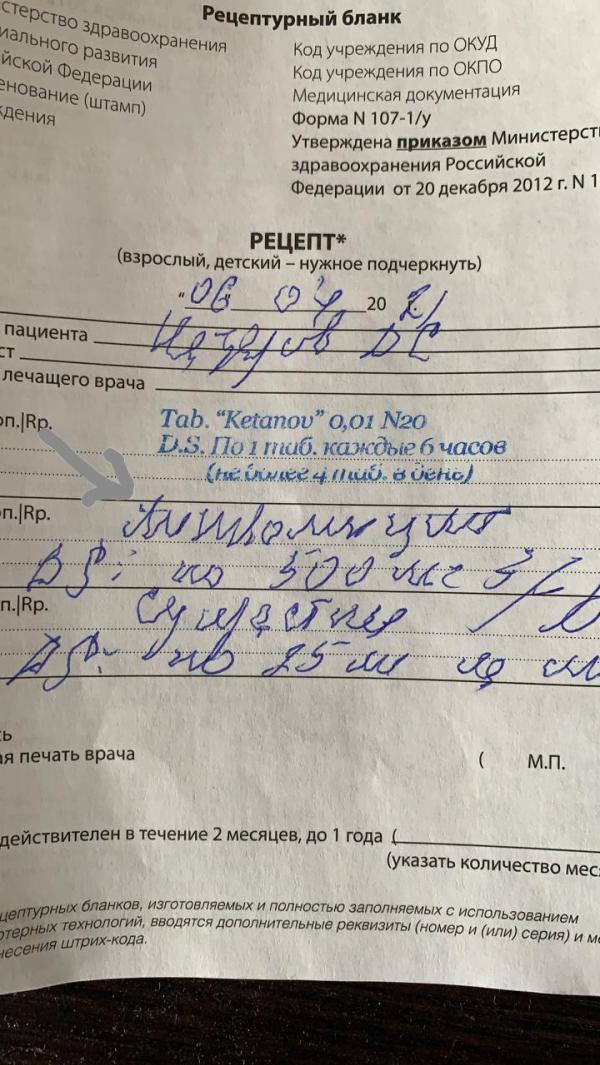 Рецептурный бланк
стерство здравоохранения
иального развития
йской Федерации
енование (штамп)
ждения
Код учреждения по ОКУД
Код учреждения по ОКПО
Медицинская документация
Форма N 107-1/у
Утверждена приказом Министерст
здравоохранения Российской
Федерации от 20 декабря 2012 г. N 1
РЕЦЕПТ*
(взрослый, детский – нужное подчеркнуть)
"06" 04 20 21
пациента
ст
лечащего врача
оп.|Rp.
Tab. "Ketanov" 0,01 N20
D.S. По 1 таб. каждые 6 часов
(не более 4 таб. в день)
оп.|Rp.
DS: по 500 мг
п.|Rp. Супрастин
DS: по 25 на
ь
ая печать врача ( М.П.
действителен в течение 2 месяцев, до 1 года (
(указать количество меся
цептурных бланков, изготовляемых и полностью заполняемых с использованием
ютерных технологий, вводятся дополнительные реквизиты (номер и (или) серия) и ме
несения штрих-кода.